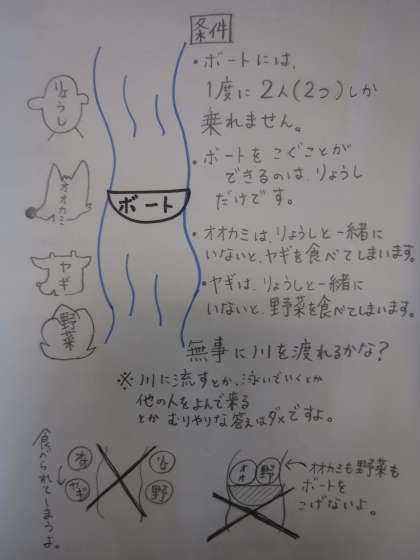 条件
・ボートには、
1度に2人(2つ)しか
乗れません。
・ボートをこぐことが
できるのは、りょうし
だけです。
・オオカミは、りょうしと一緒に
いないと、ヤギを食べてしまいます。
・ヤギは、りょうしと一緒に
いないと、野菜を食べてしまいます。
無事に川を渡れるかな?
りょうし
オオカミ
ヤギ
野菜
ボート
※川に流すとか、泳いでいくとか
他の人をよんで来る
とかむりやりな答えはダメですよ。
食べられてしまうよ。
オオ
ヤギ
りょ
野
オオ
野
オオカミも野菜も
ボートを
こげないよ。